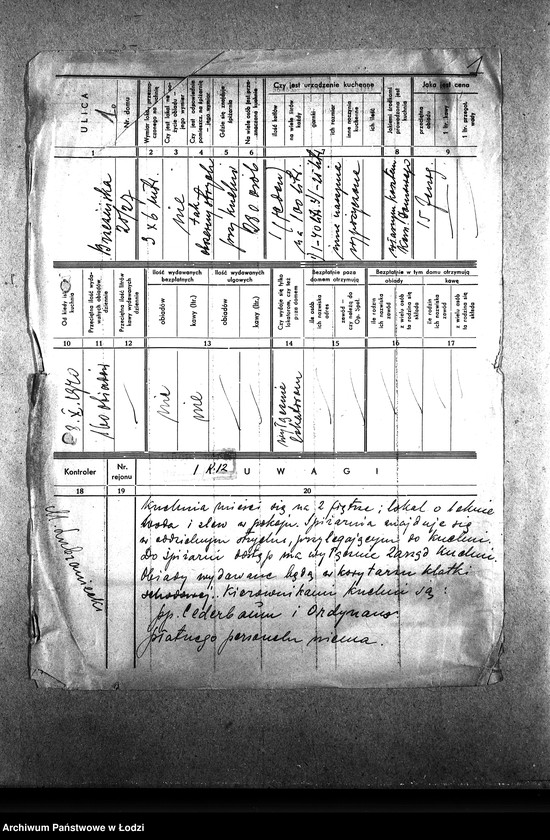 1
ULICA
Nr. domu
Wymiar lokalu przeznaczonego na kuchnię
Czy jest odpowiednie pomieszcz. na spiżarnię – jego wymiar
Gdzie się znajduje spiżarnia
Na wiele osób jest przeznaczona kuchnia
Czy jest urządzenie kuchenne
ilość kotłów
na wiele litrów każdy
garnki
ich rozmiar
inne naczynia kuchenne
ich ilość
Jakiemi środkami prowadzona jest kuchnia
Jaka jest cena
przeciętna obiadu
1 ltr. kawy
1 ltr. przegot. wody
1 2 3 4 5 6 7 8 9
Brzezińska
3 x 6 mt.
nie
przy kuchni
280 osób
1 jeden
na 100 litr.
inne naczynia
wypożyczone
15 fenig
Od kiedy istn. kuchnia
Przeciętna ilość wydawanych obiadów dziennie
Przeciętna ilość litrów kawy wydawanych dziennie
Ilość wydawanych bezpłatnych
obiadów
kawy (ltr.)
Ilość wydawanych ulgowych
obiadów
kawy (ltr.)
Czy wydaje się tylko lokatorom, czy też poza domem
Bezpłatnie poza domem otrzymują
ile osób
ich nazwiska
adres
zawód –
czy należą do Op. Społ.
Bezpłatnie w tym domu otrzymują
obiady
ile rodzin
ich nazwiska
zawód
z wielu osób ta rodzina się składa
kawę
ile rodzin
ich nazwiska
zawód
z wielu osób ta rodzina się składa
10 11 12 13 14 15 16 17
3. X. 1940
180 obiadów
nie
nie
wyłącznie
lokatorom
Kontroler
Nr. rejonu
1 R. 12
UWAGI
18 19 20
Kuchnia mieści się na 2 piętrze; lokal o 1 oknie
woda i zlew w pokoju. Spiżarnia znajduje się
w oddzielnym strychu, przylegającym do kuchni.
Do spiżarni dostęp ma wyłącznie zarząd kuchni.
Obiady wydawane będą w korytarzu klatki
schodowej. Kierownikami kuchni są:
pp. Cederbaum i Ordynans
płatnego personelu niema.
Archiwum Państwowe w Łodzi